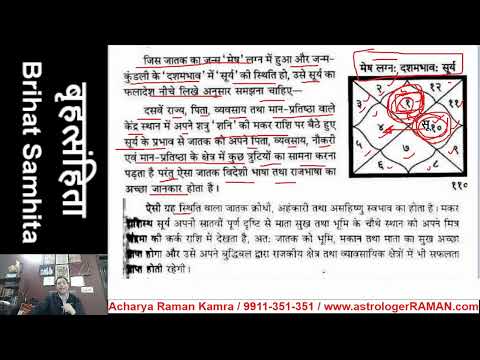 बृहत्संहिता
Brihat Samhita
जिस जातक का जन्म 'मेष' लग्न में हुआ और जन्म-
कुंडली के 'दशमभाव' में 'सूर्य' की स्थिति हो, उसे सूर्य का
फलादेश नीचे लिखे अनुसार समझना चाहिए—
दसवें राज्य, पिता, व्यवसाय तथा मान-प्रतिष्ठा वाले
केंद्र स्थान में अपने शत्रु 'शनि' की मकर राशि पर बैठे हुए
सूर्य के प्रभाव से जातक को अपने पिता, व्यवसाय, नौकरी
एवं मान-प्रतिष्ठा के क्षेत्र में कुछ त्रुटियों का सामना करना
पड़ता है परंतु ऐसा जातक विदेशी भाषा तथा राजभाषा का
अच्छा जानकार होता है।
मेष लग्न: दशमभाव: सूर्य
२
१२
३
१
११
४
सू. १०
५
७
९
६
८
११०
ऐसी ग्रह स्थिति वाला जातक क्रोधी, अहंकारी तथा असहिष्णु स्वभाव का होता है। मकर
सूर्य अपनी सातवीं पूर्ण दृष्टि से माता सुख तथा भूमि के चौथे स्थान को अपने मित्र
की कर्क राशि में देखता है, अत: जातक को भूमि, मकान तथा माता का सुख अच्छा
होगा और उसे अपने बुद्धिबल द्वारा राजकीय क्षेत्र तथा व्यावसायिक क्षेत्रों में भी सफलता
होती रहेगी।
Acharya Raman Kamra / 9911-351-351 / www.astrologerRAMAN.com